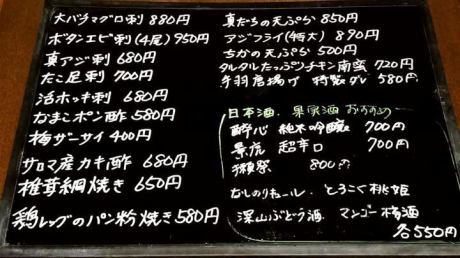 大バラマグロ刺 880円
ボタンエビ刺(4尾)950円
真アジ刺 680円
たこ足刺 700円
活ホッキ刺 680円
なまこポン酢 580円
梅ザーサイ 400円
サロマ産カキ酢 680円
椎茸網焼き 650円
鶏レッグのパン粉焼き580円
真だちの天ぷら 850円
アジフライ(特大) 890円
ちかの天ぷら 500円
タルタルたっぷりチキン南蛮 720円
手羽唐揚げ 特製ダレ 580円
日本酒、果実酒 おすすめ
酔心 純米吟醸 700円
景虎 超辛口 700円
獺祭 800円
なしのリキュール とろこく桃姫
深山ぶどう酒 マンゴー梅酒
各550円